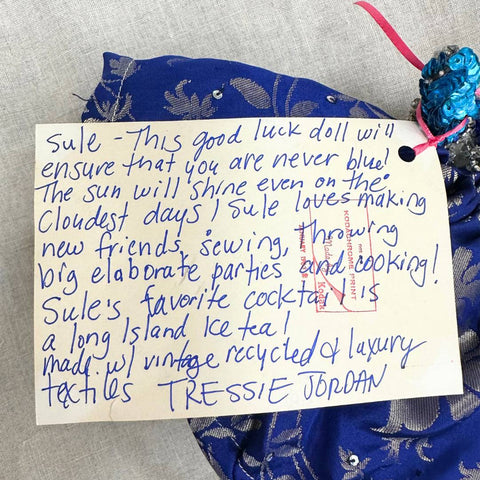 Sule - This good luck doll will
ensure that you are never blue!
The sun will shine even on the
Cloudest days! Sule loves making
new friends, sewing, throwing
big elaborate parties and cooking!
Sule's favorite cocktail is
a long Island Ice tea!
made w/ vintage recycled & luxury
textiles TRESSIE JORDAN
KODACHROME PRINT
Made by Kodak